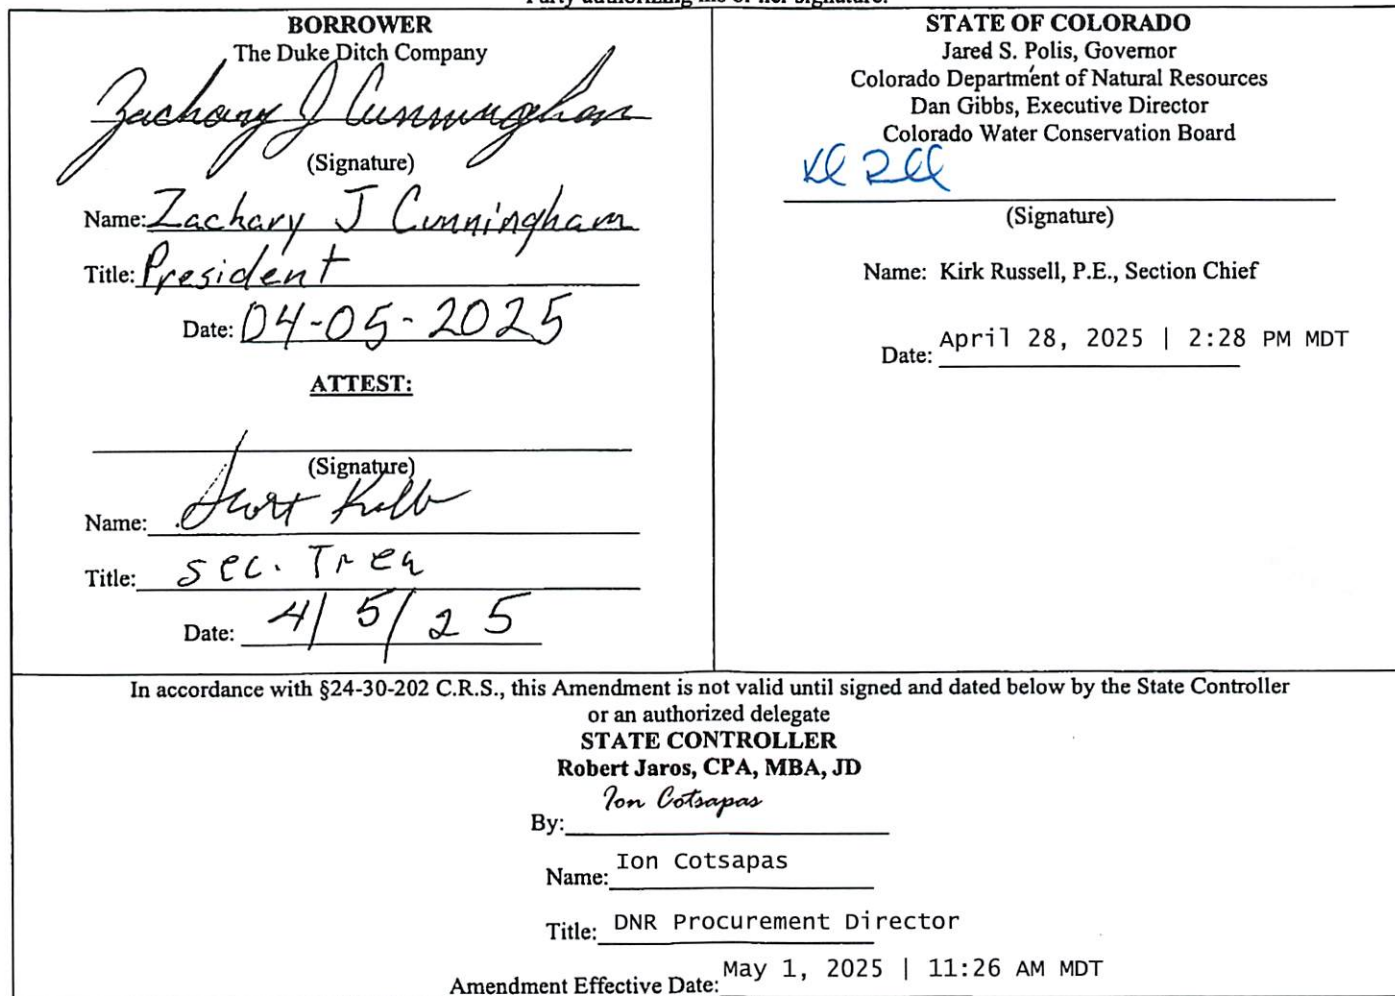 Party authorizing his or her signature.
BORROWER
The Duke Ditch Company
Zachary J Cunningham
(Signature)
Name: Zachary J Cunningham
Title: President
Date: 04-05-2025
ATTEST:
(Signature)
Name: Scott Kolb
Title: sec. Trea
Date: 4/5/25
STATE OF COLORADO
Jared S. Polis, Governor
Colorado Department of Natural Resources
Dan Gibbs, Executive Director
Colorado Water Conservation Board
(Signature)
Name: Kirk Russell, P.E., Section Chief
Date: April 28, 2025 | 2:28 PM MDT
In accordance with §24-30-202 C.R.S., this Amendment is not valid until signed and dated below by the State Controller
or an authorized delegate
STATE CONTROLLER
Robert Jaros, CPA, MBA, JD
By: Ion Cotsapas
Name: Ion Cotsapas
Title: DNR Procurement Director
Amendment Effective Date: May 1, 2025 | 11:26 AM MDT